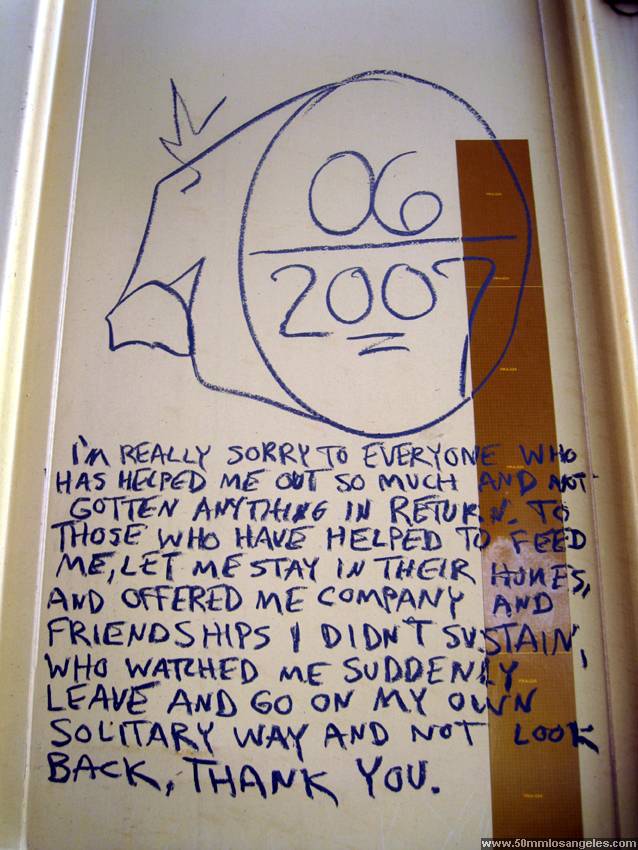 06
2007
I'M REALLY SORRY TO EVERYONE WHO
HAS HELPED ME OUT SO MUCH AND NOT
GOTTEN ANYTHING IN RETURN. TO
THOSE WHO HAVE HELPED TO FEED
ME, LET ME STAY IN THEIR HOMES,
AND OFFERED ME COMPANY AND
FRIENDSHIPS I DIDN'T SUSTAIN,
WHO WATCHED ME SUDDENLY
LEAVE AND GO ON MY OWN
SOLITARY WAY AND NOT LOOK
BACK, THANK YOU.
www.50mmlosangeles.com